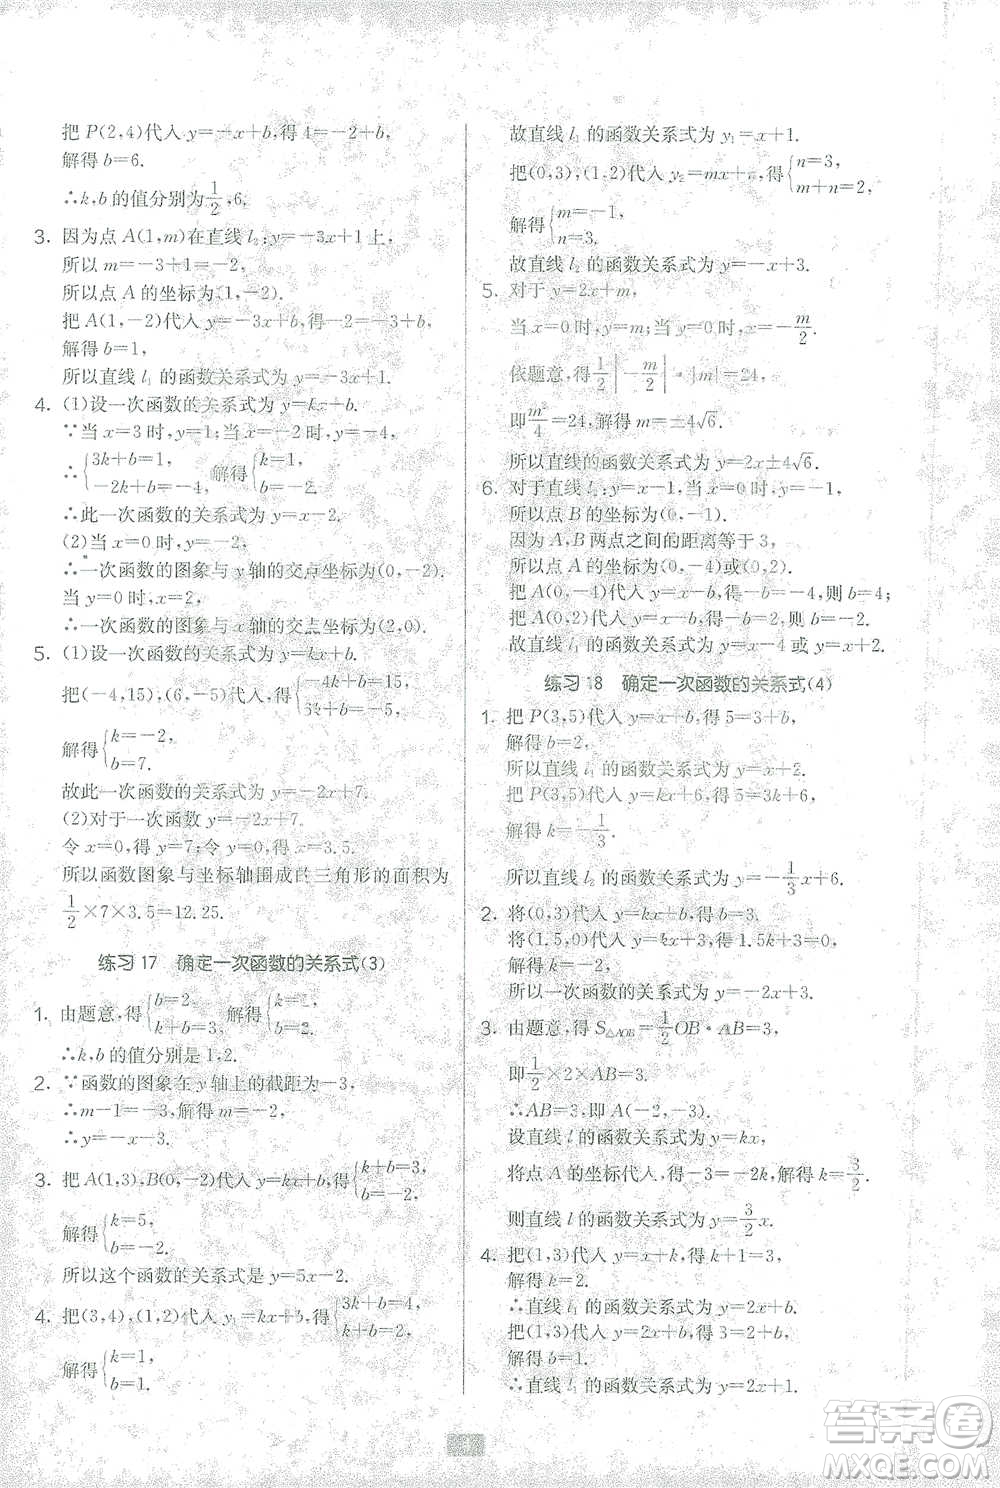 把P(2,4)代入 y=-x+b,得 4=-2+b,
解得 b=6.
∴k,b的值分别为1/2,6.
3. 因为点A(1,m)在直线l₂:y=-3x+1上,
所以 m=-3+1=-2,
所以点A的坐标为(1,-2).
把A(1,-2)代入 y=-3x+b,得-3+b=-2,
解得 b=1,
所以直线l₁的函数关系式为 y=-3x+1.
4. (1)设一次函数的关系式为 y=kx+b.
∵当x=3时,y=1;当x=-2时,y=-4,
∴{3k+b=1, -2k+b=-4, 解得{k=1, b=-2.
∴此一次函数的关系式为 y=x-2.
(2)当x=0时,y=-2,
∴一次函数的图象与y轴的交点坐标为(0,-2).
当y=0时,x=2,
∴一次函数的图象与x轴的交点坐标为(2,0).
5. (1)设一次函数的关系式为 y=kx+b.
把(-4,15),(6,-5)代入 y=kx+b,得{-4k+b=15, 6k+b=-5,
解得{k=-2, b=7.
故此一次函数的关系式为 y=-2x+7.
(2)对于一次函数 y=-2x+7,
令x=0,得y=7;令y=0,得x=3.5.
所以函数图象与坐标轴围成的三角形的面积为
1/2×7×3.5=12.25.
练习17 确定一次函数的关系式(3)
1. 由题意,得{b=2, k+b=3, 解得{k=1, b=2.
∴k,b的值分别是1,2.
2. ∵函数的图象在y轴上的截距为-3,
∴m-1=-3,解得m=-2,
∴y=-x-3.
3. 把A(1,3),B(0,-2)代入 y=kx+b,得{k+b=3, b=-2,
解得{k=5, b=-2,
所以这个函数的关系式是 y=5x-2.
4. 把(3,4),(1,2)代入 y₁=kx+b,得{3k+b=4, k+b=2,
解得{k=1, b=1.
故直线l₁的函数关系式为 y₁=x+1.
把(0,3),(1,2)代入 y₂=mx+n,得{n=3, m+n=2,
解得{m=-1, n=3.
故直线l₂的函数关系式为 y₂=-x+3.
5. 对于 y=2x+m,
当x=0时,y=m;当y=0时,x=-m/2.
依题意,得1/2|-m/2|·|m|=24,
即m²/4=24,解得 m=±4√6.
所以直线的函数关系式为 y=2x±4√6.
6. 对于直线l₂:y=x-1,当x=0时,y=-1,
所以点B的坐标为(0,-1).
因为A,B两点之间的距离等于3,
所以点A的坐标为(0,-4)或(0,2).
把A(0,-4)代入 y=x-b,得-b=-4,则b=4;
把A(0,2)代入 y=x-b,得-b=2,则b=-2.
故直线l₁的函数关系式为 y=x-4或y=x+2.
练习18 确定一次函数的关系式(4)
1. 把P(3,5)代入 y=x+b,得 5=3+b,
解得 b=2,
所以直线l₁的函数关系式为 y=x+2.
把P(3,5)代入 y=kx+6,得 5=3k+6,
解得 k=-1/3.
所以直线l₂的函数关系式为 y=-1/3x+6.
2. 将(0,3)代入 y=kx+b,得 b=3,
将(1.5,0)代入 y=kx+3,得1.5k+3=0,
解得 k=-2.
所以一次函数的关系式为 y=-2x+3.
3. 由题意,得 S△AOB=1/2OB·AB=3,
即1/2×2×AB=3,
∴AB=3,即A(-2,-3).
设直线l的函数关系式为 y=kx,
将点A的坐标代入,得-3=-2k,解得 k=3/2.
则直线l的函数关系式为 y=3/2x.
4. 把(1,3)代入 y=x+k,得 k+1=3,
解得 k=2.
∴直线l₁的函数关系式为 y=x+2.
把(1,3)代入 y=2x+b,得 3=2+b,
解得 b=1.
∴直线l₁的函数关系式为 y=2x+1.
答案圈
MXQE.COM